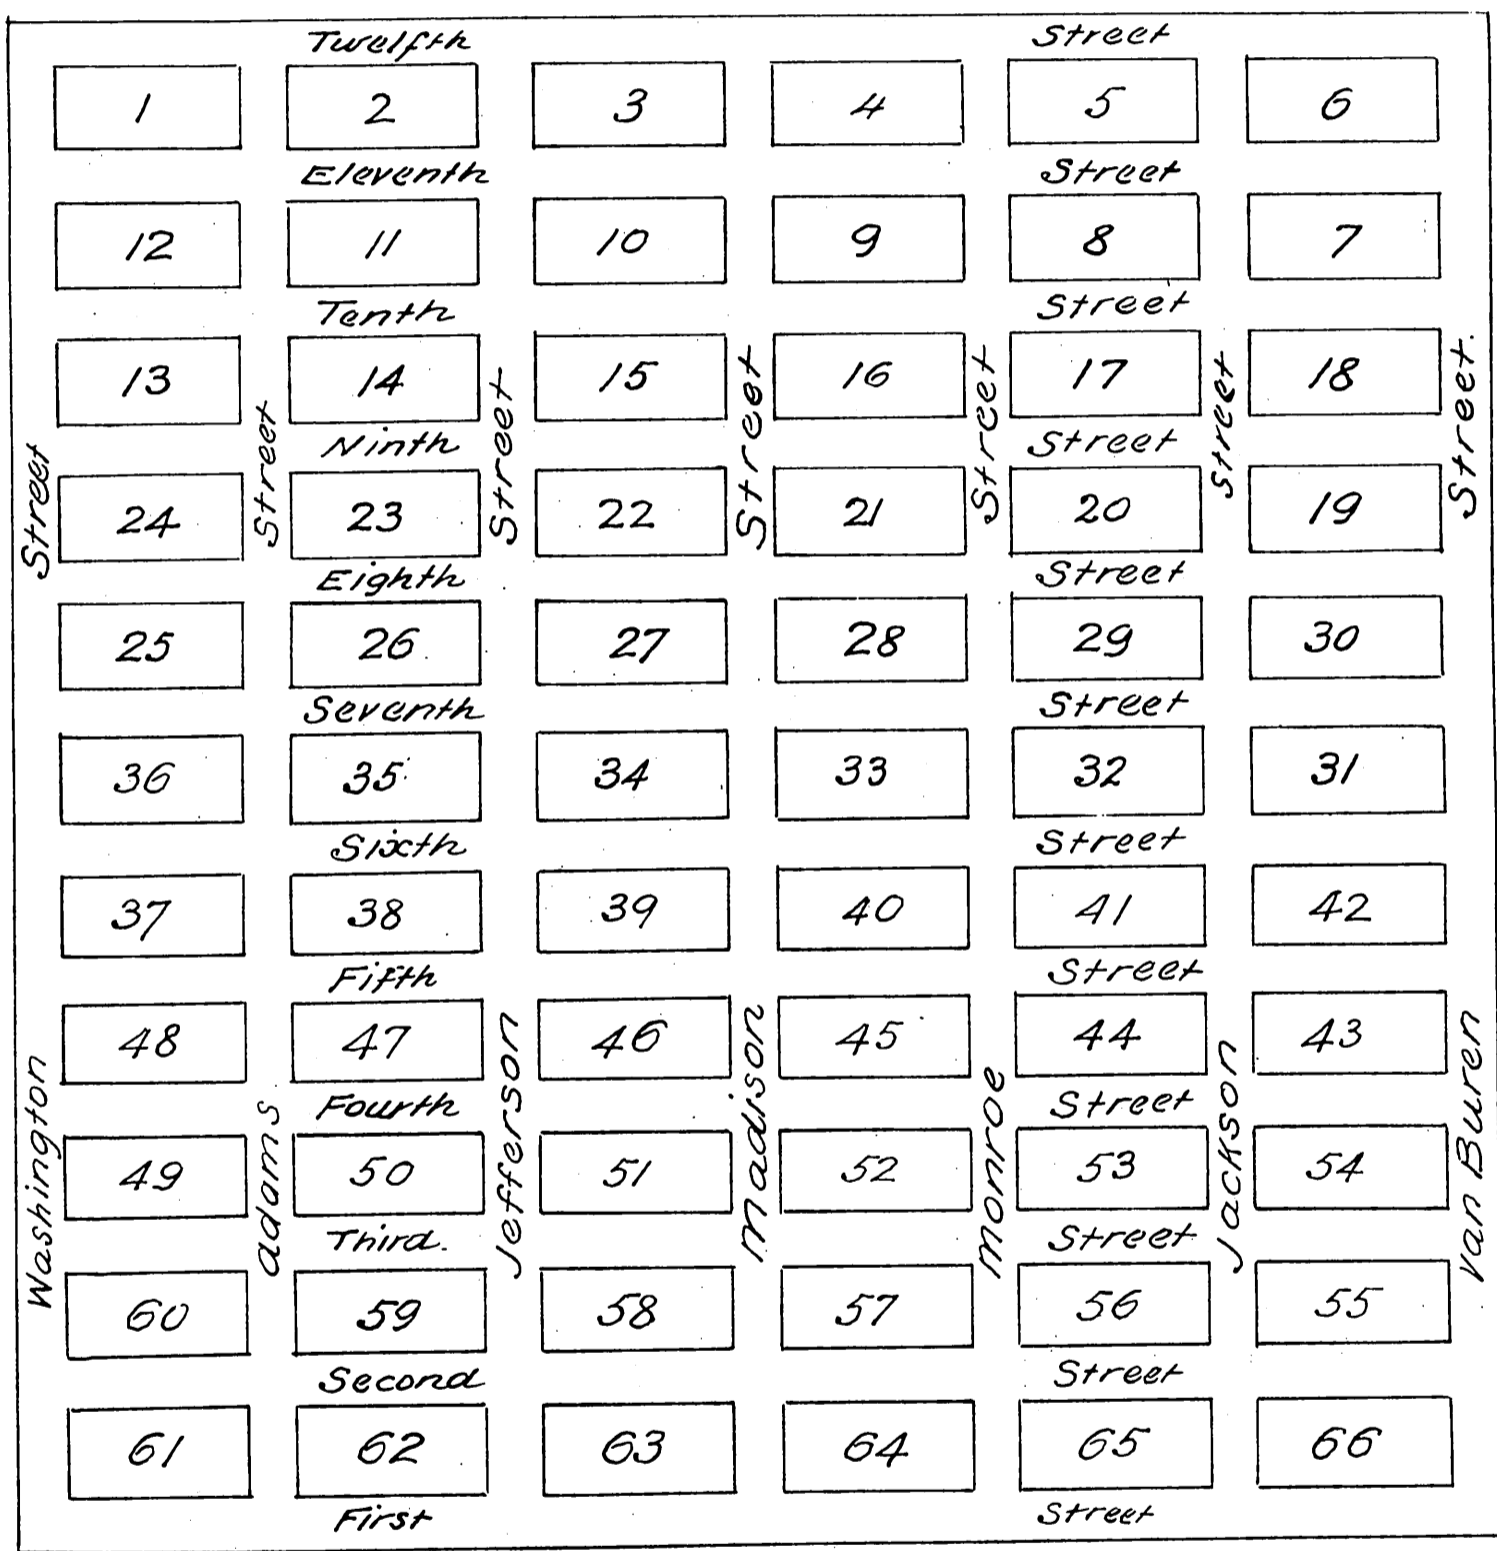 Twelfth Street
1 2 3 4 5 6
Eleventh Street
12 11 10 9 8 7
Tenth Street
13 14 15 16 17 18
Ninth Street
24 23 22 21 20 19
Eighth Street
25 26 27 28 29 30
Seventh Street
36 35 34 33 32 31
Sixth Street
37 38 39 40 41 42
Fifth Street
48 47 46 45 44 43
Fourth Street
49 50 51 52 53 54
Third. Street
60 59 58 57 56 55
Second Street
61 62 63 64 65 66
First Street
Washington Street
adams Street
Jefferson Street
madison Street
monroe Street
Jackson street
Van Buren Street.